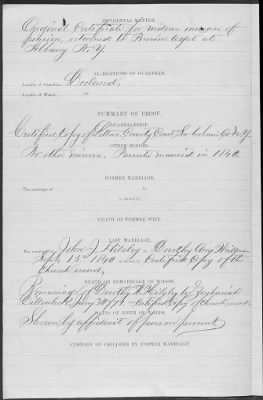 INCIDENTAL MATTER.
Original Certificate for widow increase of
pension, returned to Pension Agent at
Albany N. Y.
ALLEGATIONS OF GUARDIAN.
Letters of Guardian,
Letters of Wards,
SUMMARY OF PROOF.
GUARDIANSHIP.
Certified Copy of Letters, County Court Schoharie Co. N. Y.
OTHER MINORS.
No other minors, Parents married in 1840
FORMER MARRIAGE.
The marriage of
to
DEATH OF FORMER WIFE.
LAST MARRIAGE.
The marriage of John J to Dorothy Ann
Sept. 13th 1840 Certified Copy of the
Church record,
DEATH OR REMARRIAGE OF WIDOW.
Remarriage of Dorothy A to
Certified copy of Church record
DATES OF BIRTH OF WARDS.
Shown by affidavit of person present
CUSTODY OF CHILDREN BY FORMER MARRIAGE.